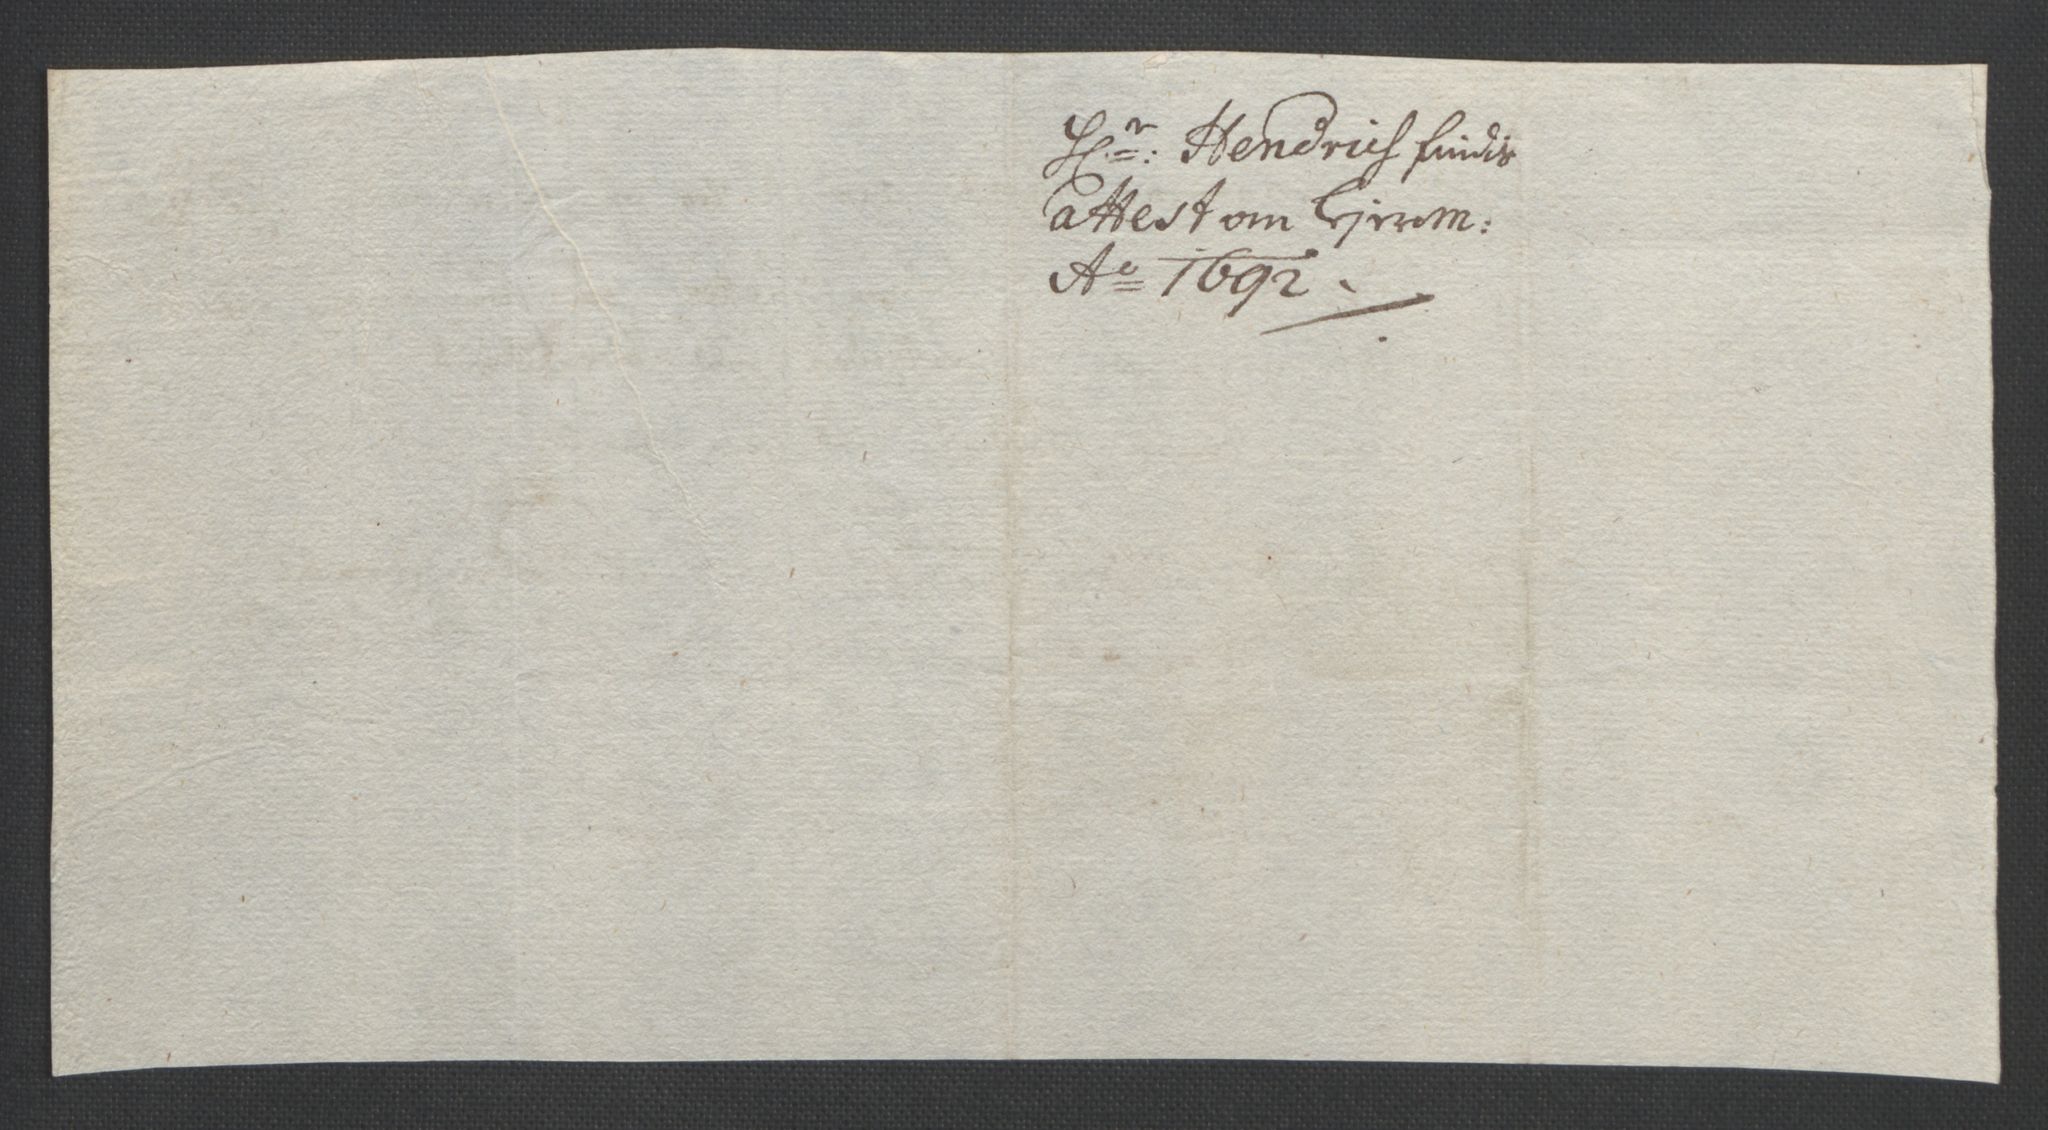 Hr: Hendrich findis
attest om
Ao 1692.